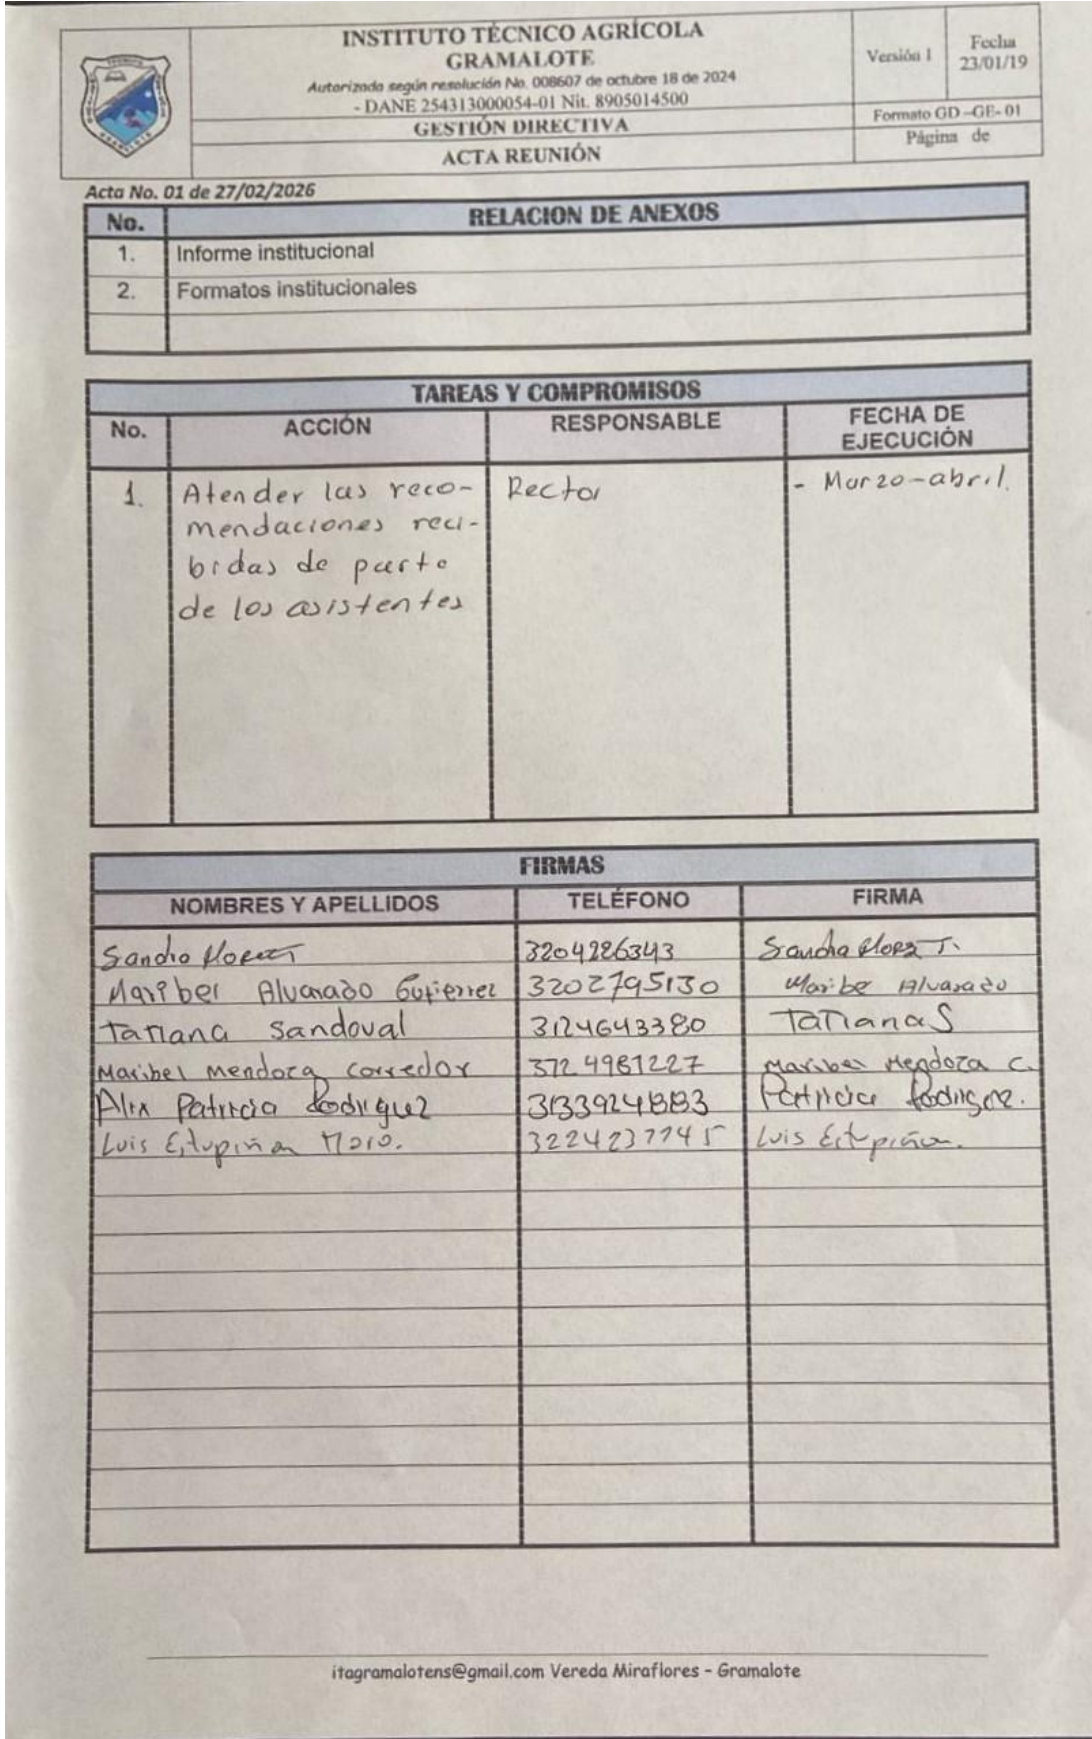 INSTITUTO TÉCNICO AGRÍCOLA
GRAMALOTE
Autorizado según resolución No. 008607 de octubre 18 de 2024
- DANE 254313000054-01 Nit. 8905014500
GESTIÓN DIRECTIVA
ACTA REUNIÓN
Versión 1
Fecha
23/01/19
Formato GD-GE-01
Página de
Acta No. 01 de 27/02/2026
No. RELACION DE ANEXOS
1. Informe institucional
2. Formatos institucionales
TAREAS Y COMPROMISOS
No. ACCIÓN RESPONSABLE FECHA DE EJECUCIÓN
1. Atender las reco- Rector - Marzo-abril.
mendaciones reci-
bidas de parte
de los asistentes
FIRMAS
NOMBRES Y APELLIDOS TELÉFONO FIRMA
Sandra Florez T 3204286343 Sandra Florez T.
Maribel Alvarado Gutierrez 3202795130 Maribel Alvarado
Tatiana Sandoval 3124643380 Tatiana S
Maribel Mendoza Corredor 3124981227 Maribel Mendoza C.
Alix Patricia Rodriguez Patricia Rodriguez.
Luis Estupiñan 3224237745 Luis Estupiñan.
itagramalotens@gmail.com Vereda Miraflores - Gramalote